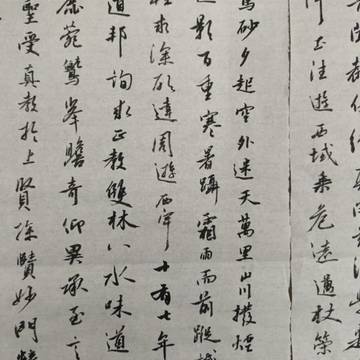 土往遊西域乘危遠邁杖策
砂夕起空外迷天萬里山川撥煙
進影百重寒暑躡霜雨而前蹤誠
求深願達周遊西宇十有七年
道邦詢求正教雙林八水味道
鹿菀鷲峯瞻奇仰異承至言
聖受真教於上賢探賾妙門精